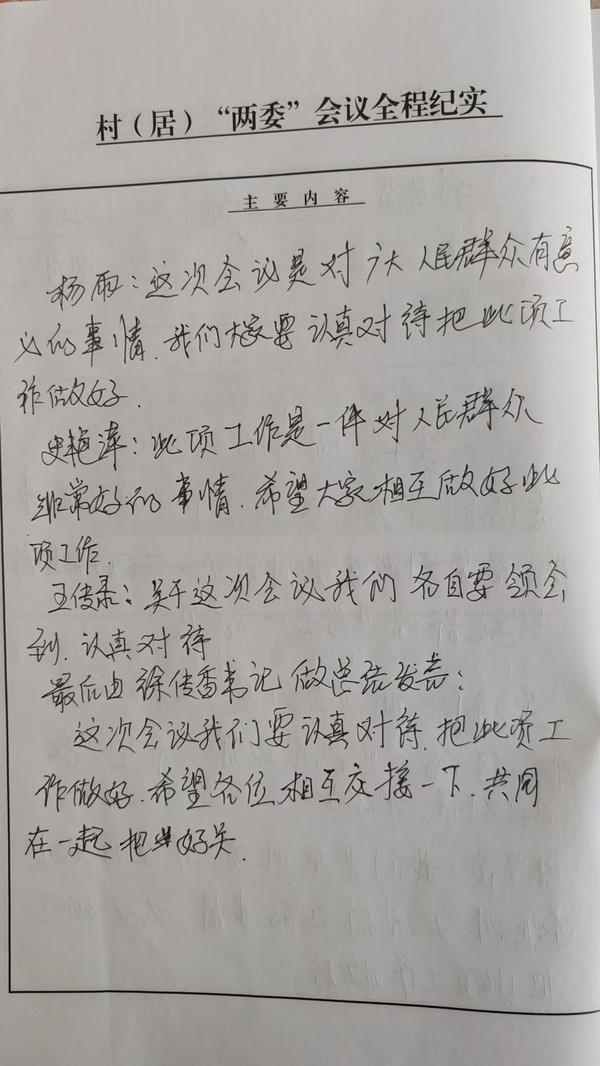 村（居）“两委”会议全程纪实
主要内容
杨雨：这次会议是对广大人民群众有意
义的事情.我们大家要认真对待把此项工
作做好.
史艳萍：此项工作是一件对人民群众
非常好的事情.希望大家相互做好此
项工作.
王传录：关于这次会议我们各自要领会
到.认真对待
最后由徐传香书记做总结发言：
这次会议我们要认真对待.把此项工
作做好.希望各位相互交接一下.共同
在一起把好关.